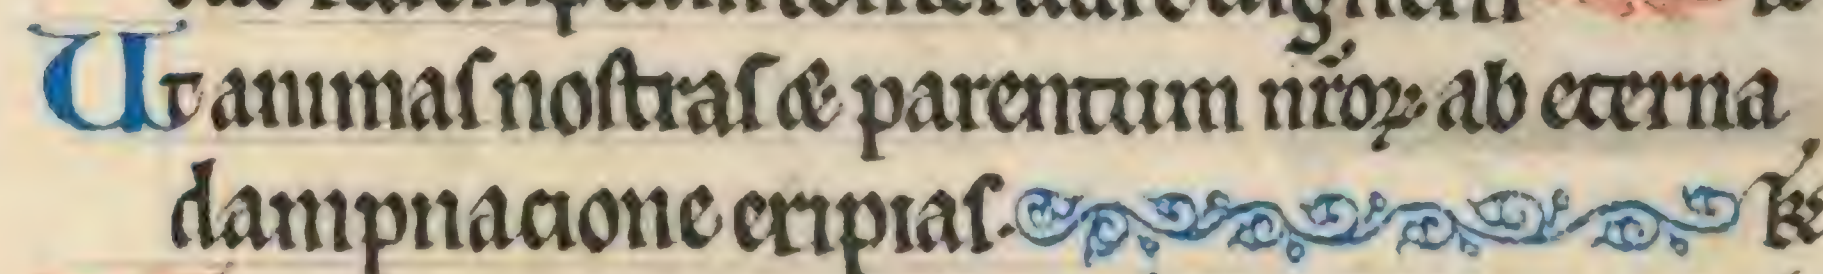 Ut animaſ noſtraſ & parentum nr̃oꝝ ab eterna
dampnacione eripiaſ.